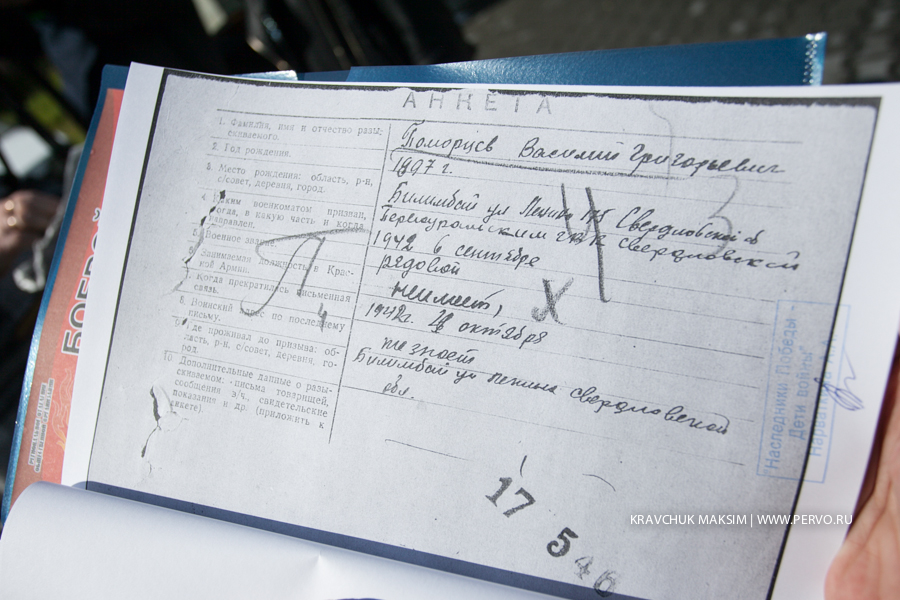 АНКЕТА
1. Фамилия, имя и отчество разы-
скиваемого.
Поморцев Василий Григорьевич
2. Год рождения.
1897 г.
3. Место рождения: область, р-н,
с/совет, деревня, город.
Билимбай ул Ленина 175 Свердловской об
4. Каким военкоматом призван,
когда, в какую часть и когда
направлен.
Первоуральским г к Свердловской
1942 в сентябре
5. Военное
рядовой
6. Занимаемая должность в Крас-
ной Армии.
не имеет,
7. Когда прекратилась письменная
связь.
1942г. октября
8. Воинский адрес по последнему
письму.
не знает
9. Где проживал до призыва: об-
ласть, р-н, с/совет, деревня, го-
род.
Билимбай ул Ленина Свердловской
обл.
10. Дополнительные данные о разы-
скиваемом: письма товарищей,
сообщения в/ч, свидетельские
показания и др. (приложить к
анкете).
П
4
Ч
17
546
"Наследники Победы -
Дети войны"
БОЕВОЙ
KRAVCHUK MAKSIM | WWW.PERVO.RU